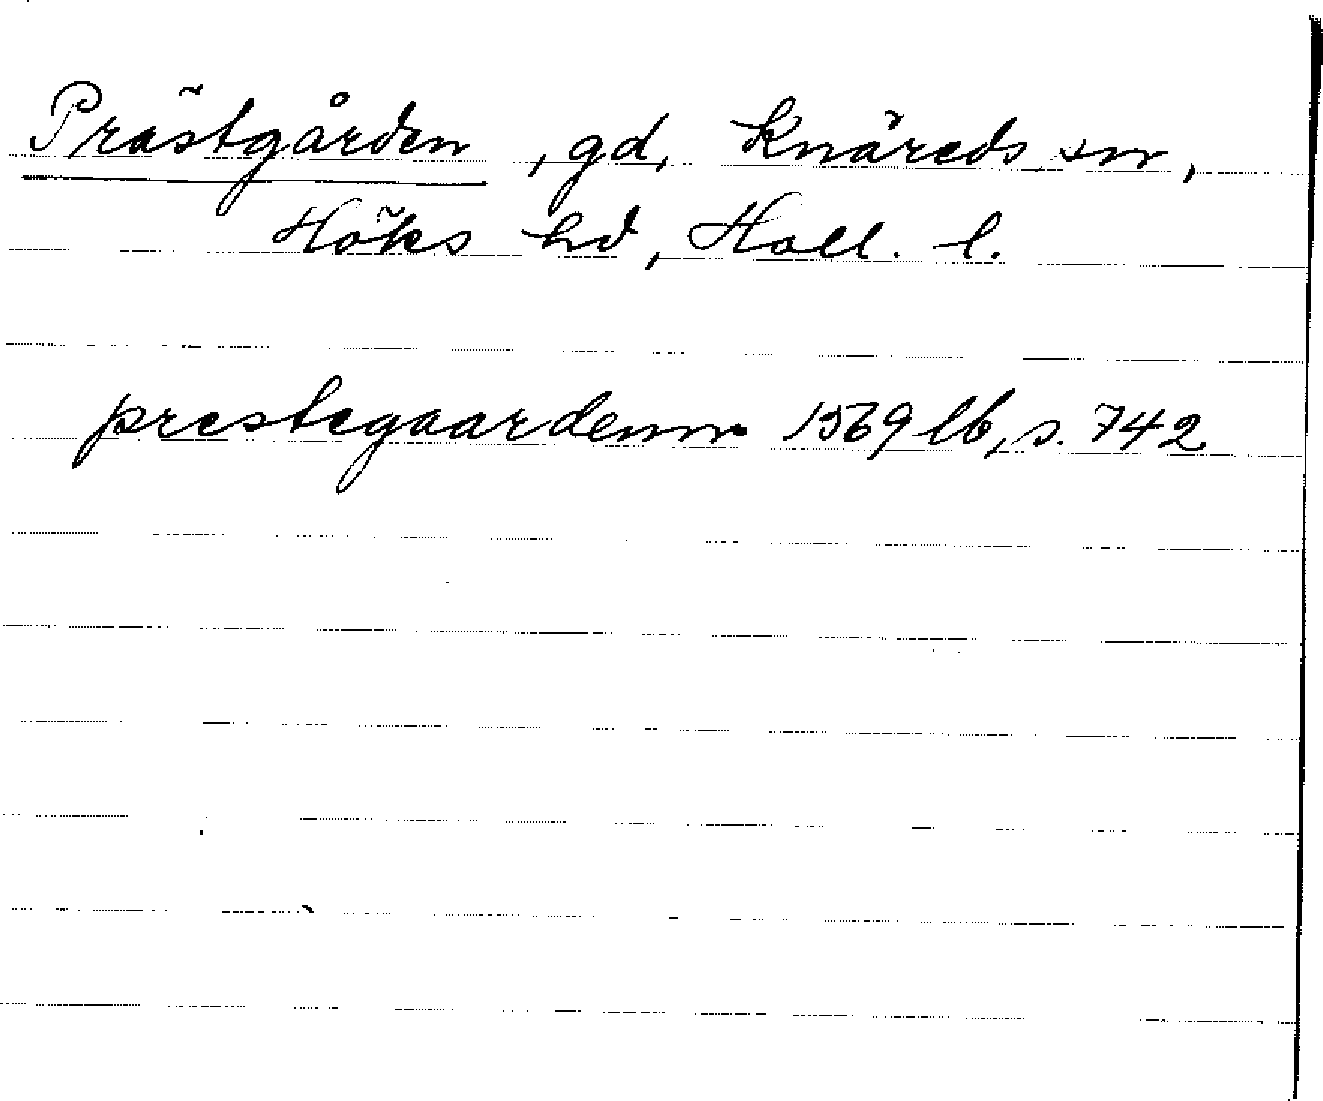 Prästgården, gd, Knäreds sn,
Höks hd, Hall. l.
prestegaardenn 1569 lb, s. 742